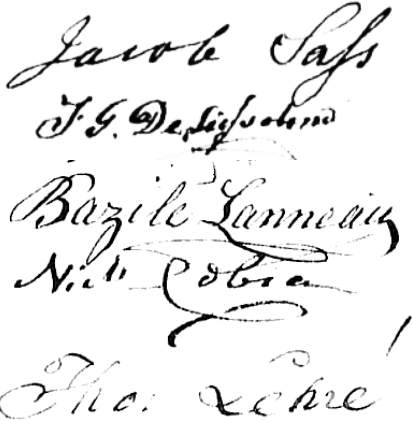 Jacob Sass
J. G. De Liesseline
Bazile Lanneau
Nich. Cobia
Tho. Lehré